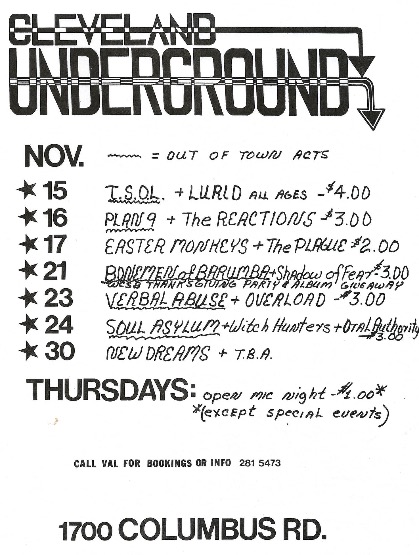 CLEVELAND
UNDERGROUND
NOV. ~~~ = OUT OF TOWN ACTS
★ 15 T.S.OL. + LURID ALL AGES - $4.00
★ 16 PLAN 9 + The REACTIONS - $3.00
★ 17 EASTER MONKEYS + The PLAGUE $2.00
★ 21 BONEMEN of BARUMBA + Shadow of Fear $3.00
WCSB THANKSGIVING PARTY & ALBUM GIVEAWAY
★ 23 VERBAL ABUSE + OVERLOAD - $3.00
★ 24 SOUL ASYLUM + Witch Hunters + OTAL Authority
$3.00
★ 30 NEW DREAMS + T.B.A.
THURSDAYS: open mic night - $1.00*
*(except special events)
CALL VAL FOR BOOKINGS OR INFO 281 5473
1700 COLUMBUS RD.